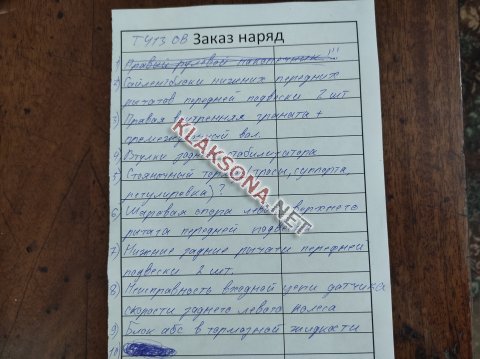 Заказ наряд
1) Правый рулевой наконечник !!!
2) Сайлентблоки нижних передних
рычагов передней подвески 2 шт
3) Правая внутренняя граната +
вал.
4) Втулки стабилизатора
5) Стояночный (тросы, суппорта,
регулировка) ?
6) Шаровая опора верхнего
рычага передней
7) Нижние задние рычаги передней
подвески 2 шт.
8) Неисправность входной цепи датчика
скорости заднего левого колеса
9) Блок абс в тормазной жидкости
10)
KLAKSONA.NET